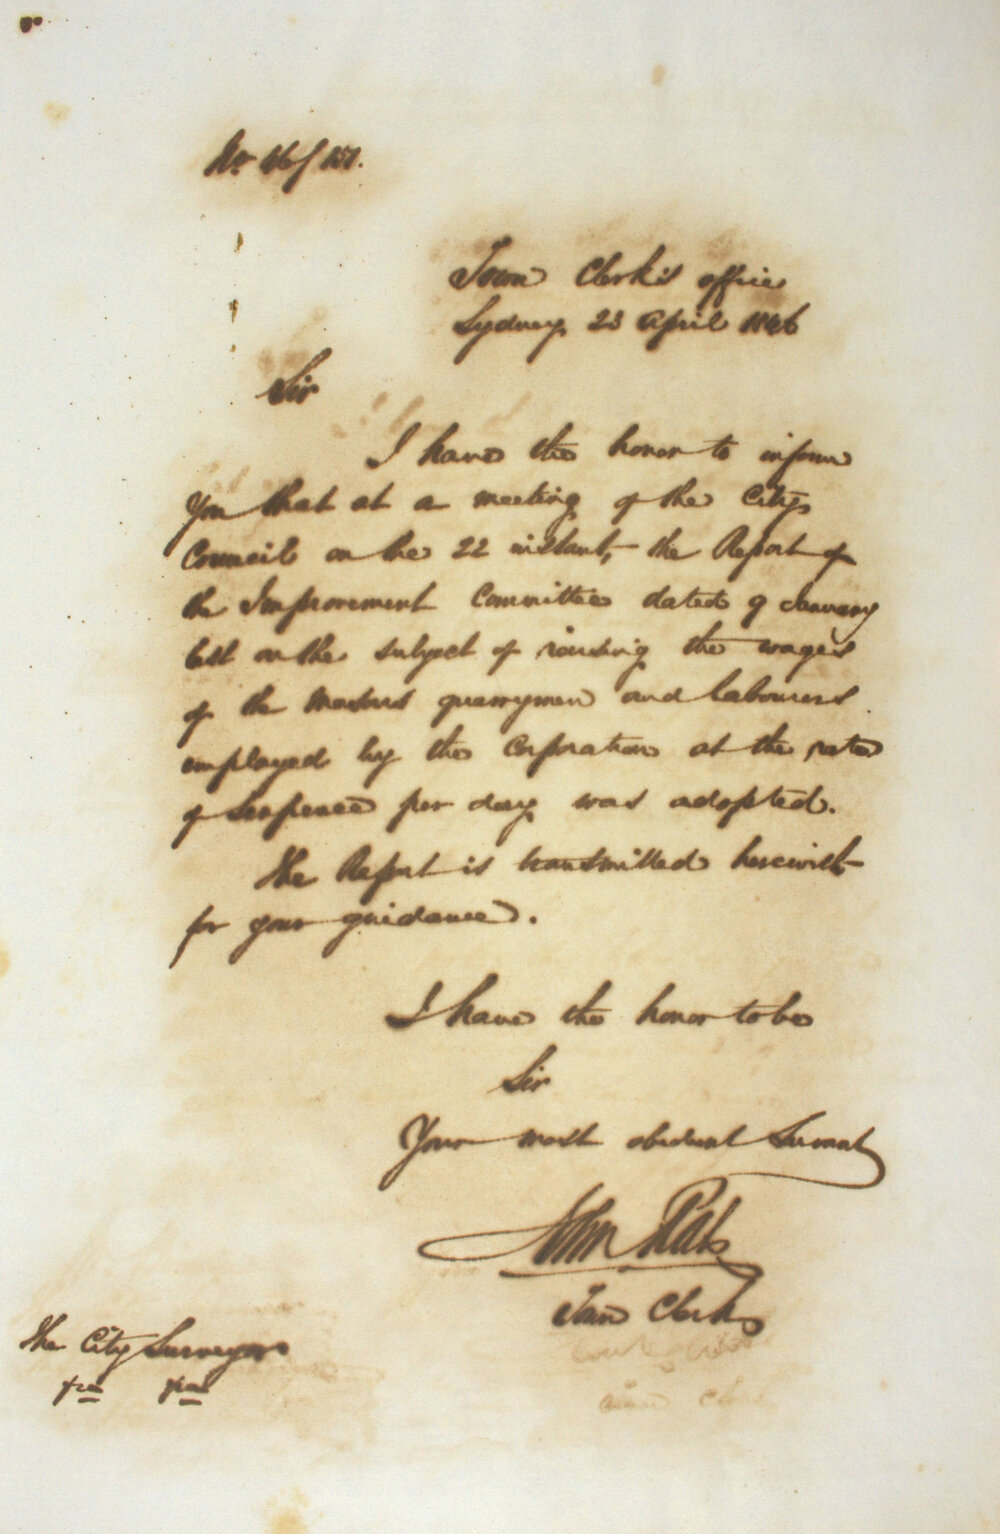 No 46/151.
Town Clerk's office
Sydney 23 April 1846
Sir
I have the honor to inform
You that at a meeting of the City
Council on the 22 instant, the Report of
the Improvement Committee dated 9 January
last on the subject of raising the wages
of the Masons quarrymen and labourers
employed by the Corporation at the rate
of Sixpence per day was adopted.
The Report is transmitted herewith
for your guidance.
I have the honor to be
Sir
Your most obedient Servant
John
Town Clerk
The City Surveyor